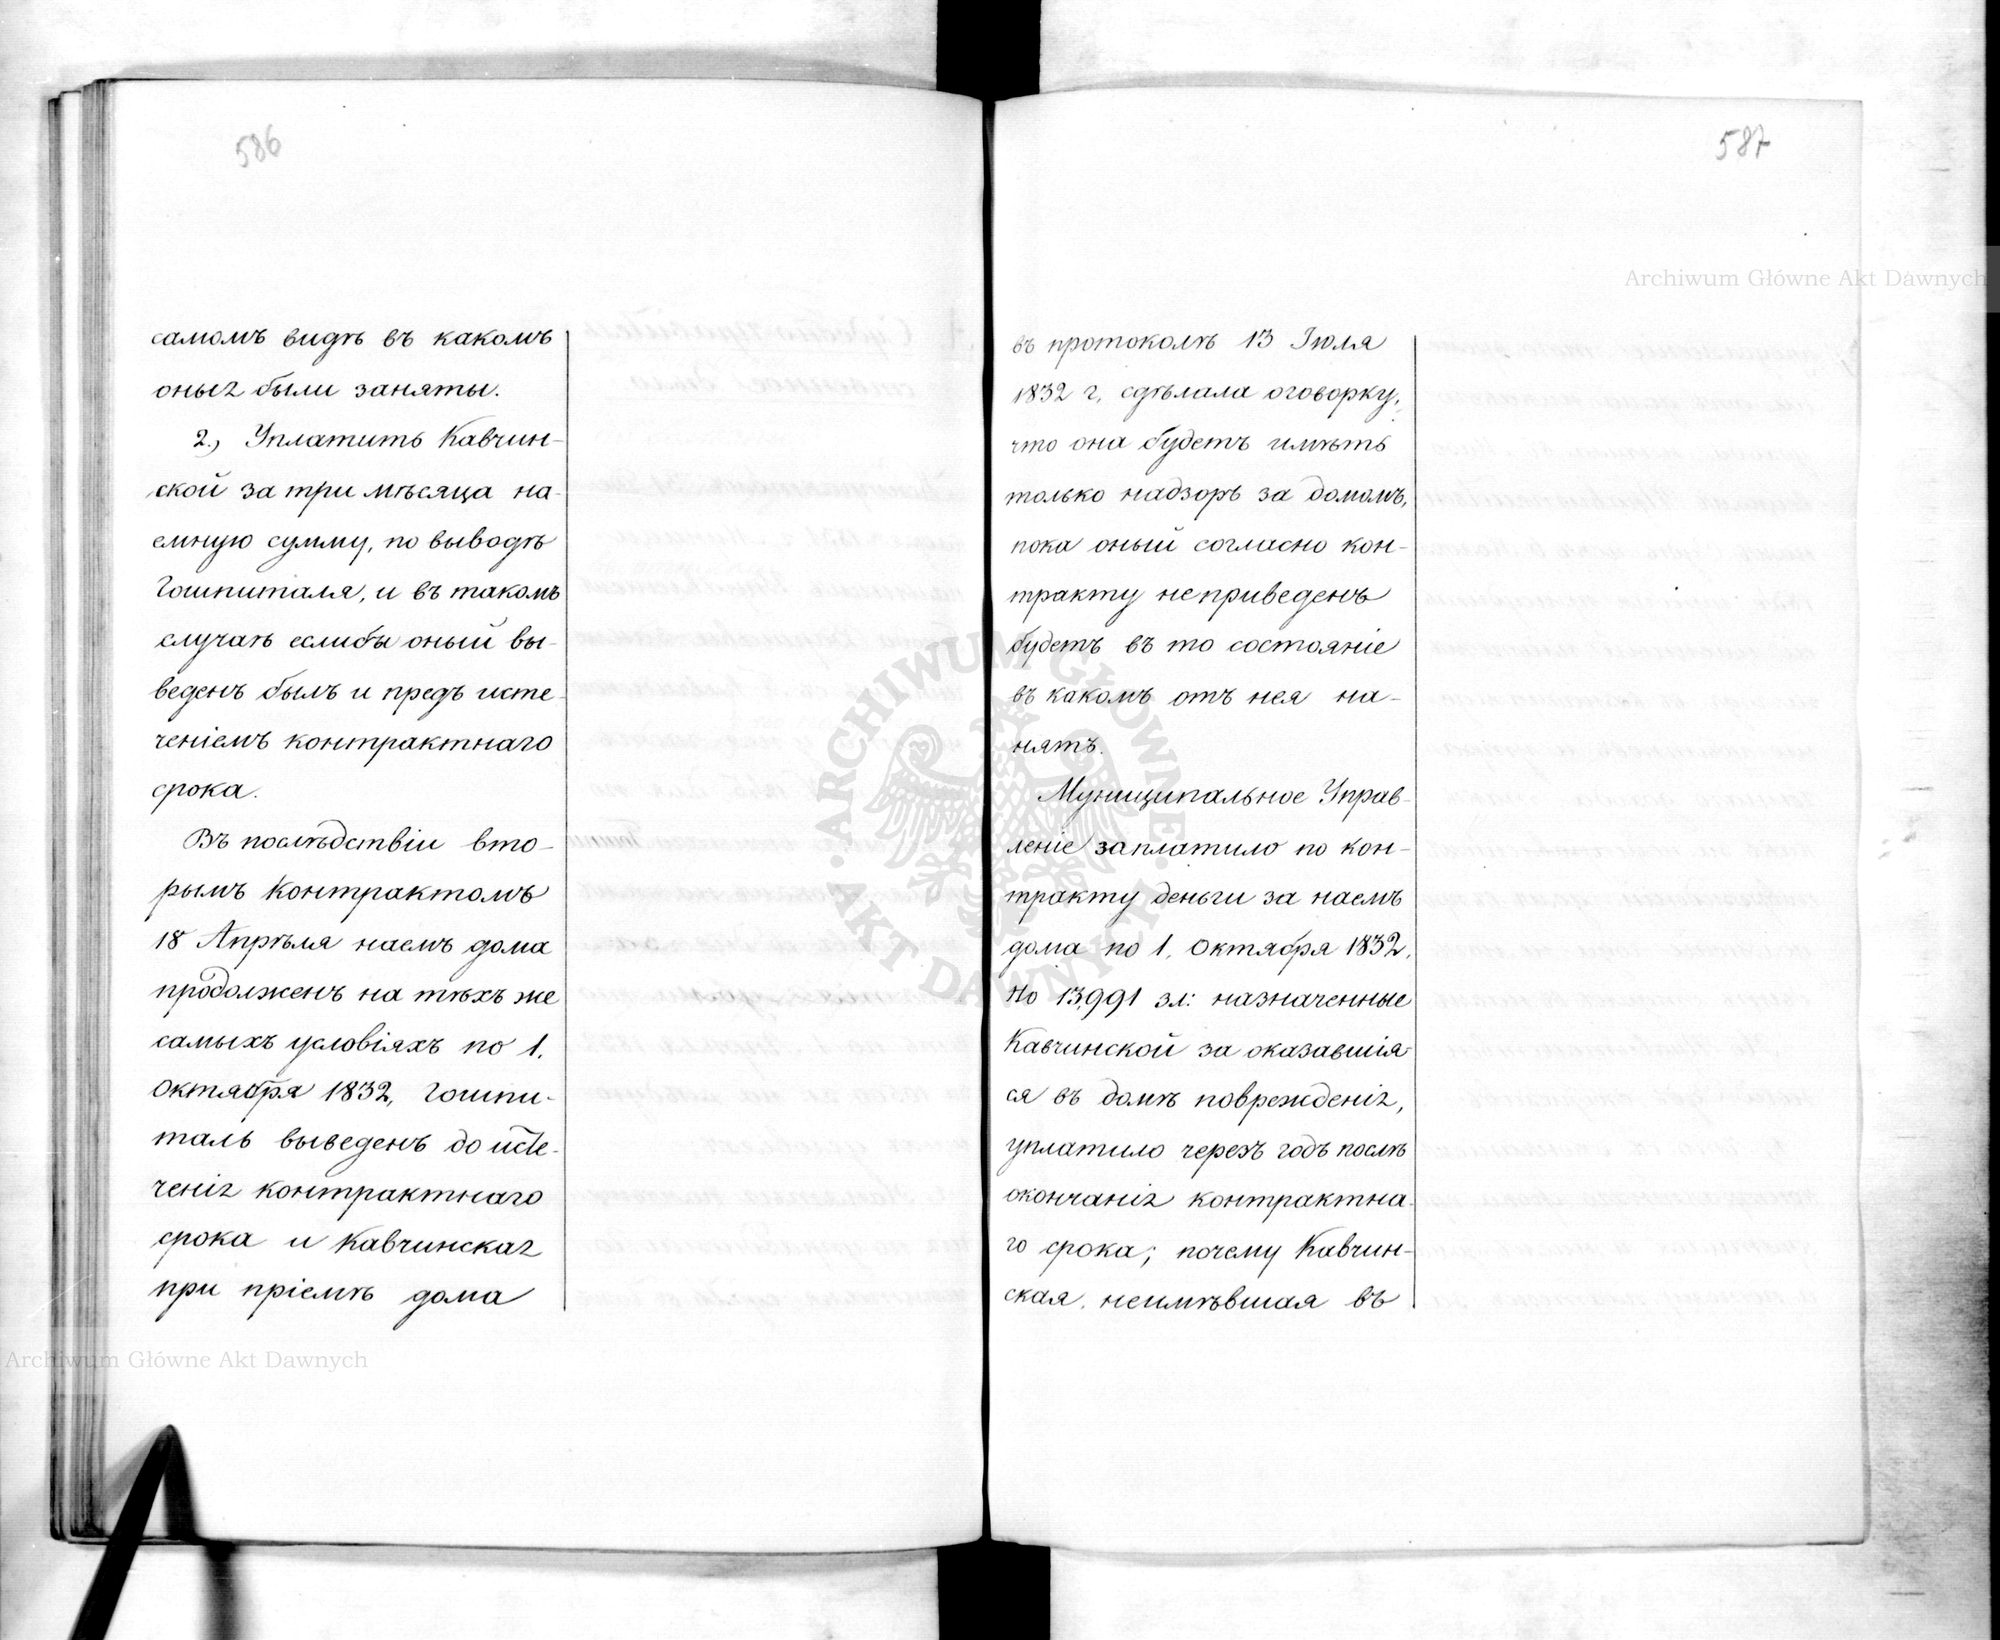 586
самомъ видѣ въ какомъ
оныя были заняты.
2., Уплатить Кавчин-
ской за три мѣсяца на-
емную сумму, по выводѣ
Гошпиталя, и въ такомъ
случаѣ еслибы оный вы-
веденъ былъ и предъ исте-
ченіемъ контрактнаго
срока.
Въ послѣдствіи вто-
рымъ контрактомъ
18 Апрѣля наемъ дома
продолженъ на тѣхъ же
самыхъ условіяхъ по 1.
Октября 1832, Гошпи-
таль выведенъ до исте-
ченія контрактнаго
срока и Кавчинская
при пріемѣ дома
587
въ протоколѣ 13 Іюля
1832 г. сдѣлала оговорку,
что она будетъ имѣть
только надзоръ за домомъ,
пока оный согласно кон-
тракту неприведенъ
будетъ въ то состояніе
въ какомъ отъ нея на-
нятъ.
Муниципальное Управ-
леніе заплатило по кон-
тракту деньги за наемъ
дома по 1. Октября 1832.
Но 13,991 зл: назначенные
Кавчинской за оказавшія-
ся въ домѣ поврежденія,
уплатило черезъ годъ послѣ
окончанія контрактна-
го срока; почему Кавчин-
ская, неимѣвшая въ
Archiwum Główne Akt Dawnych
Archiwum Główne Akt Dawnych
ARCHIWUM GŁÓWNE AKT DAWNYCH